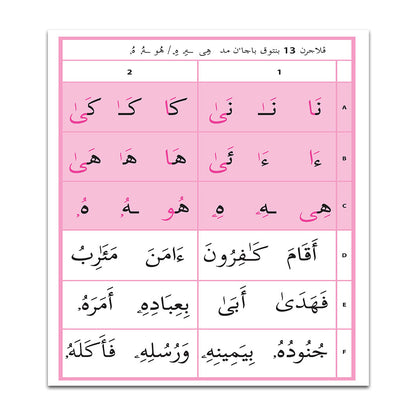 ڤلاجرن 13 بنتوق باچاءن مد هِى ـهِۦ هِۦ / هُو ـهُۥ هُۥ
2 1
A نَا نَـٰ نَىٰ كَا كَـٰ كَىٰ
B ءَا ءَٰ ئَىٰ هَا هَٰ هَىٰ
C هِى ـهِۦ هِۦ هُو ـهُۥ هُۥ
D أَقَامَ كَـٰفِرُونَ ءَامَنَ مَـَٔارِبُ
E فَهَدَىٰ أَبَىٰ بِعِبَادِهِۦ أَمَرَهُۥ
F جُنُودُهُۥ بِيَمِينِهِۦ وَرُسُلِهِۦ فَأَكَلَهُۥ